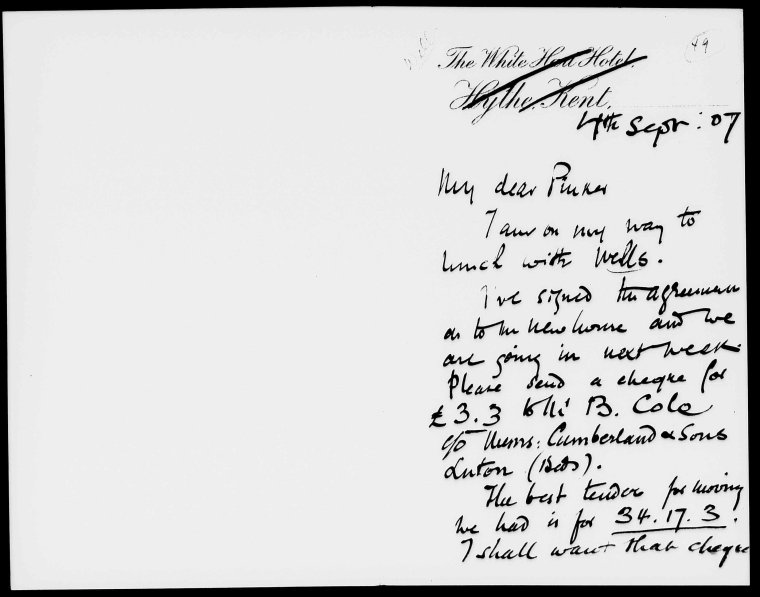 49
The White Hart Hotel.
Hythe, Kent.
4th Sept: 07
My dear Pinker
I am on my way to
lunch with Wells.
I've signed the agreement
as to the new house and we
are going in next week.
Please send a cheque for
£3.3 to Mr B. Cole
c/o Messrs: Cumberland & Sons
Luton (Beds).
The best tender for moving
we had is for 34.17.3.
I shall want that cheque